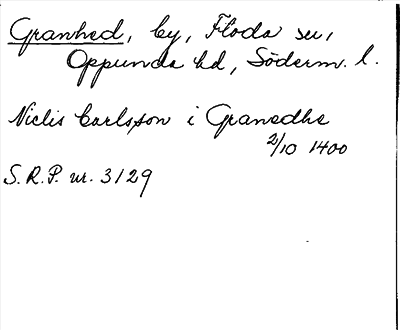 Granhed, by, Floda sn,
Oppunda hd, Söderm. l.
Niclis Carlsson i Granedhe
2/10 1400
S.R.P. nr. 3129